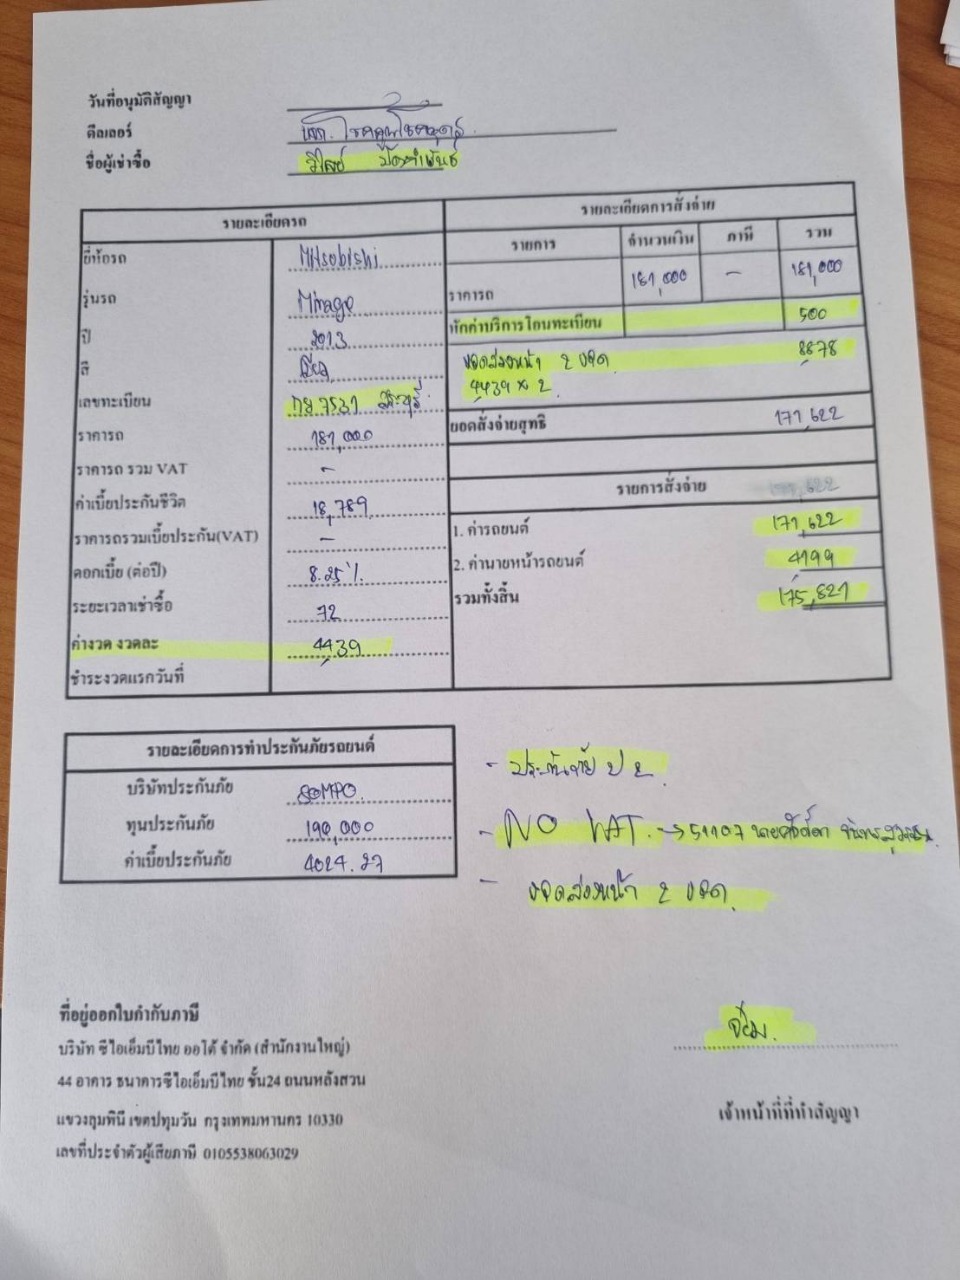 วันที่อนุมัติสัญญา
ดีลเลอร์ หจก.
ชื่อผู้เช่าซื้อ วิไลย์
รายละเอียดรถ
ยี่ห้อรถ Mitsubishi
รุ่นรถ Mirage
ปี 2013
สี
เลขทะเบียน 7531 สระบุรี
ราคารถ 181,000
ราคารถ รวม VAT -
ค่าเบี้ยประกันชีวิต 18,789
ราคารถรวมเบี้ยประกัน(VAT) -
ดอกเบี้ย (ต่อปี) 8.25 %
ระยะเวลาเช่าซื้อ 72
ค่างวด งวดละ 4,439
ชำระงวดแรกวันที่
รายละเอียดการสั่งจ่าย
รายการ จำนวนเงิน ภาษี รวม
ราคารถ 181,000 - 181,000
หักค่าบริการโอนทะเบียน 500
งวดล่วงหน้า 2 งวด 8,878
4,439 x 2
ยอดสั่งจ่ายสุทธิ 171,622
รายการสั่งจ่าย
1. ค่ารถยนต์ 171,622
2. ค่านายหน้ารถยนต์ 4,199
รวมทั้งสิ้น 175,821
รายละเอียดการทำประกันภัยรถยนต์
บริษัทประกันภัย SOMPO
ทุนประกันภัย 190,000
ค่าเบี้ยประกันภัย 4024.27
- ประกันภัย ป 2
- NO VAT. → 51107
- งวดล่วงหน้า 2 งวด
ที่อยู่ออกใบกำกับภาษี
บริษัท ซีไอเอ็มบีไทย ออโต้ จำกัด (สำนักงานใหญ่)
44 อาคาร ธนาคารซีไอเอ็มบีไทย ชั้น24 ถนนหลังสวน
แขวงลุมพินี เขตปทุมวัน กรุงเทพมหานคร 10330
เลขที่ประจำตัวผู้เสียภาษี 0105538063029
เจ้าหน้าที่ที่ทำสัญญา